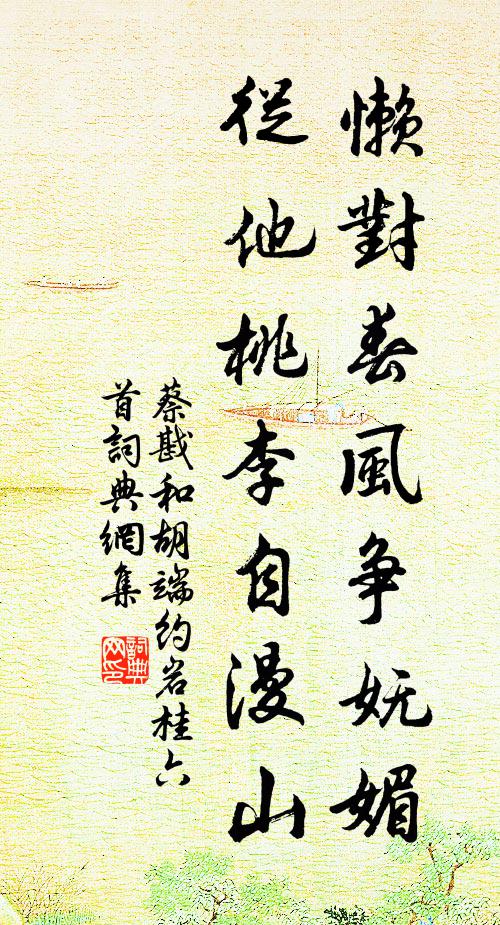 懒對春風争妩媚
從他桃李自漫山
蔡戡和胡端约岩桂六
首詞典網集
詞典網印